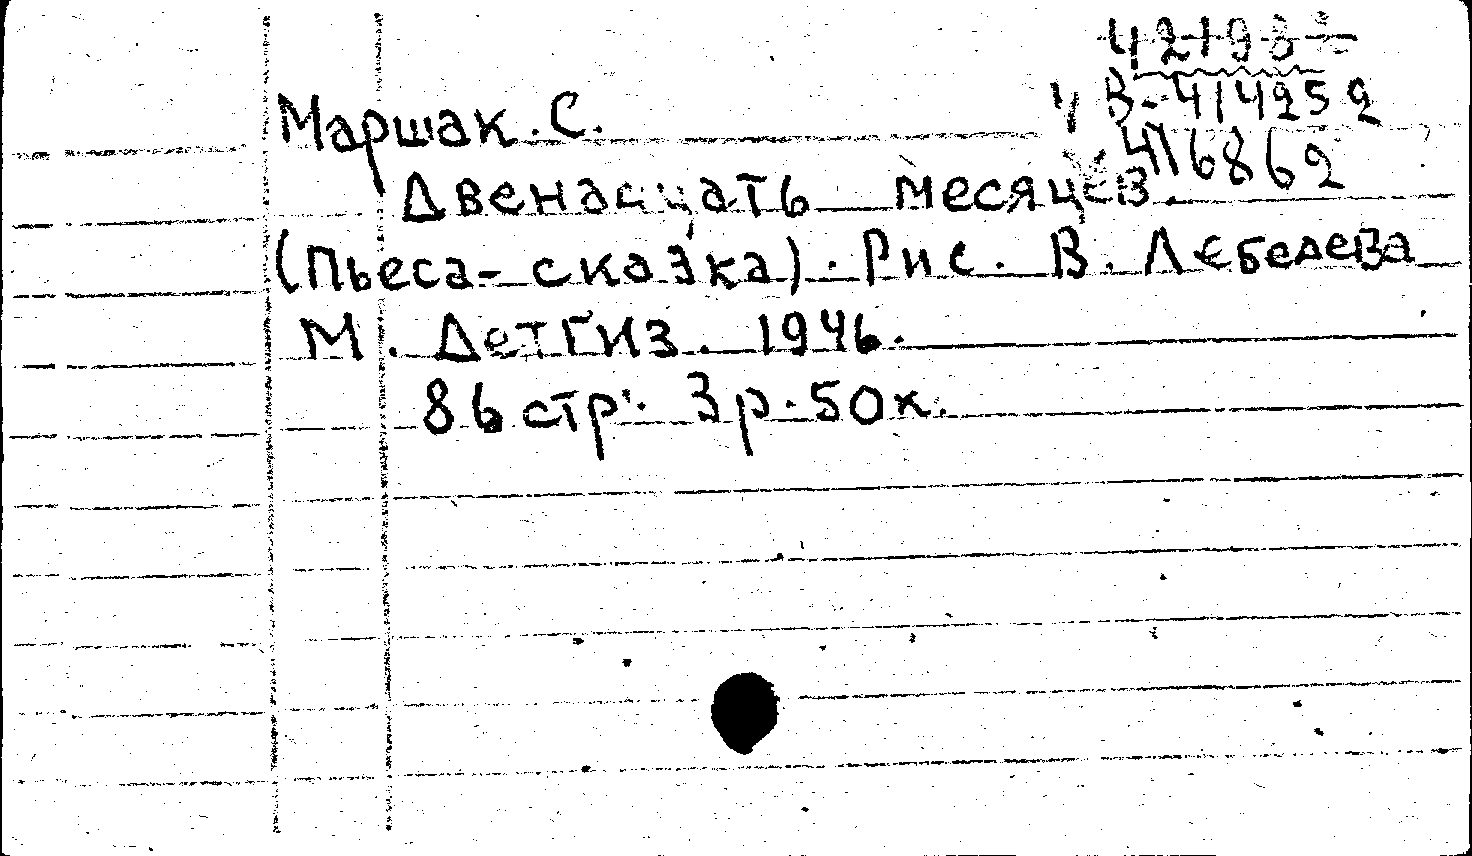 В-414252
416862
Маршак. С.
Двенадцать месяцев.
(Пьеса-сказка). Рис. В. Лебедева
М. Детгиз. 1946.
86 стр. 3р. 50к.